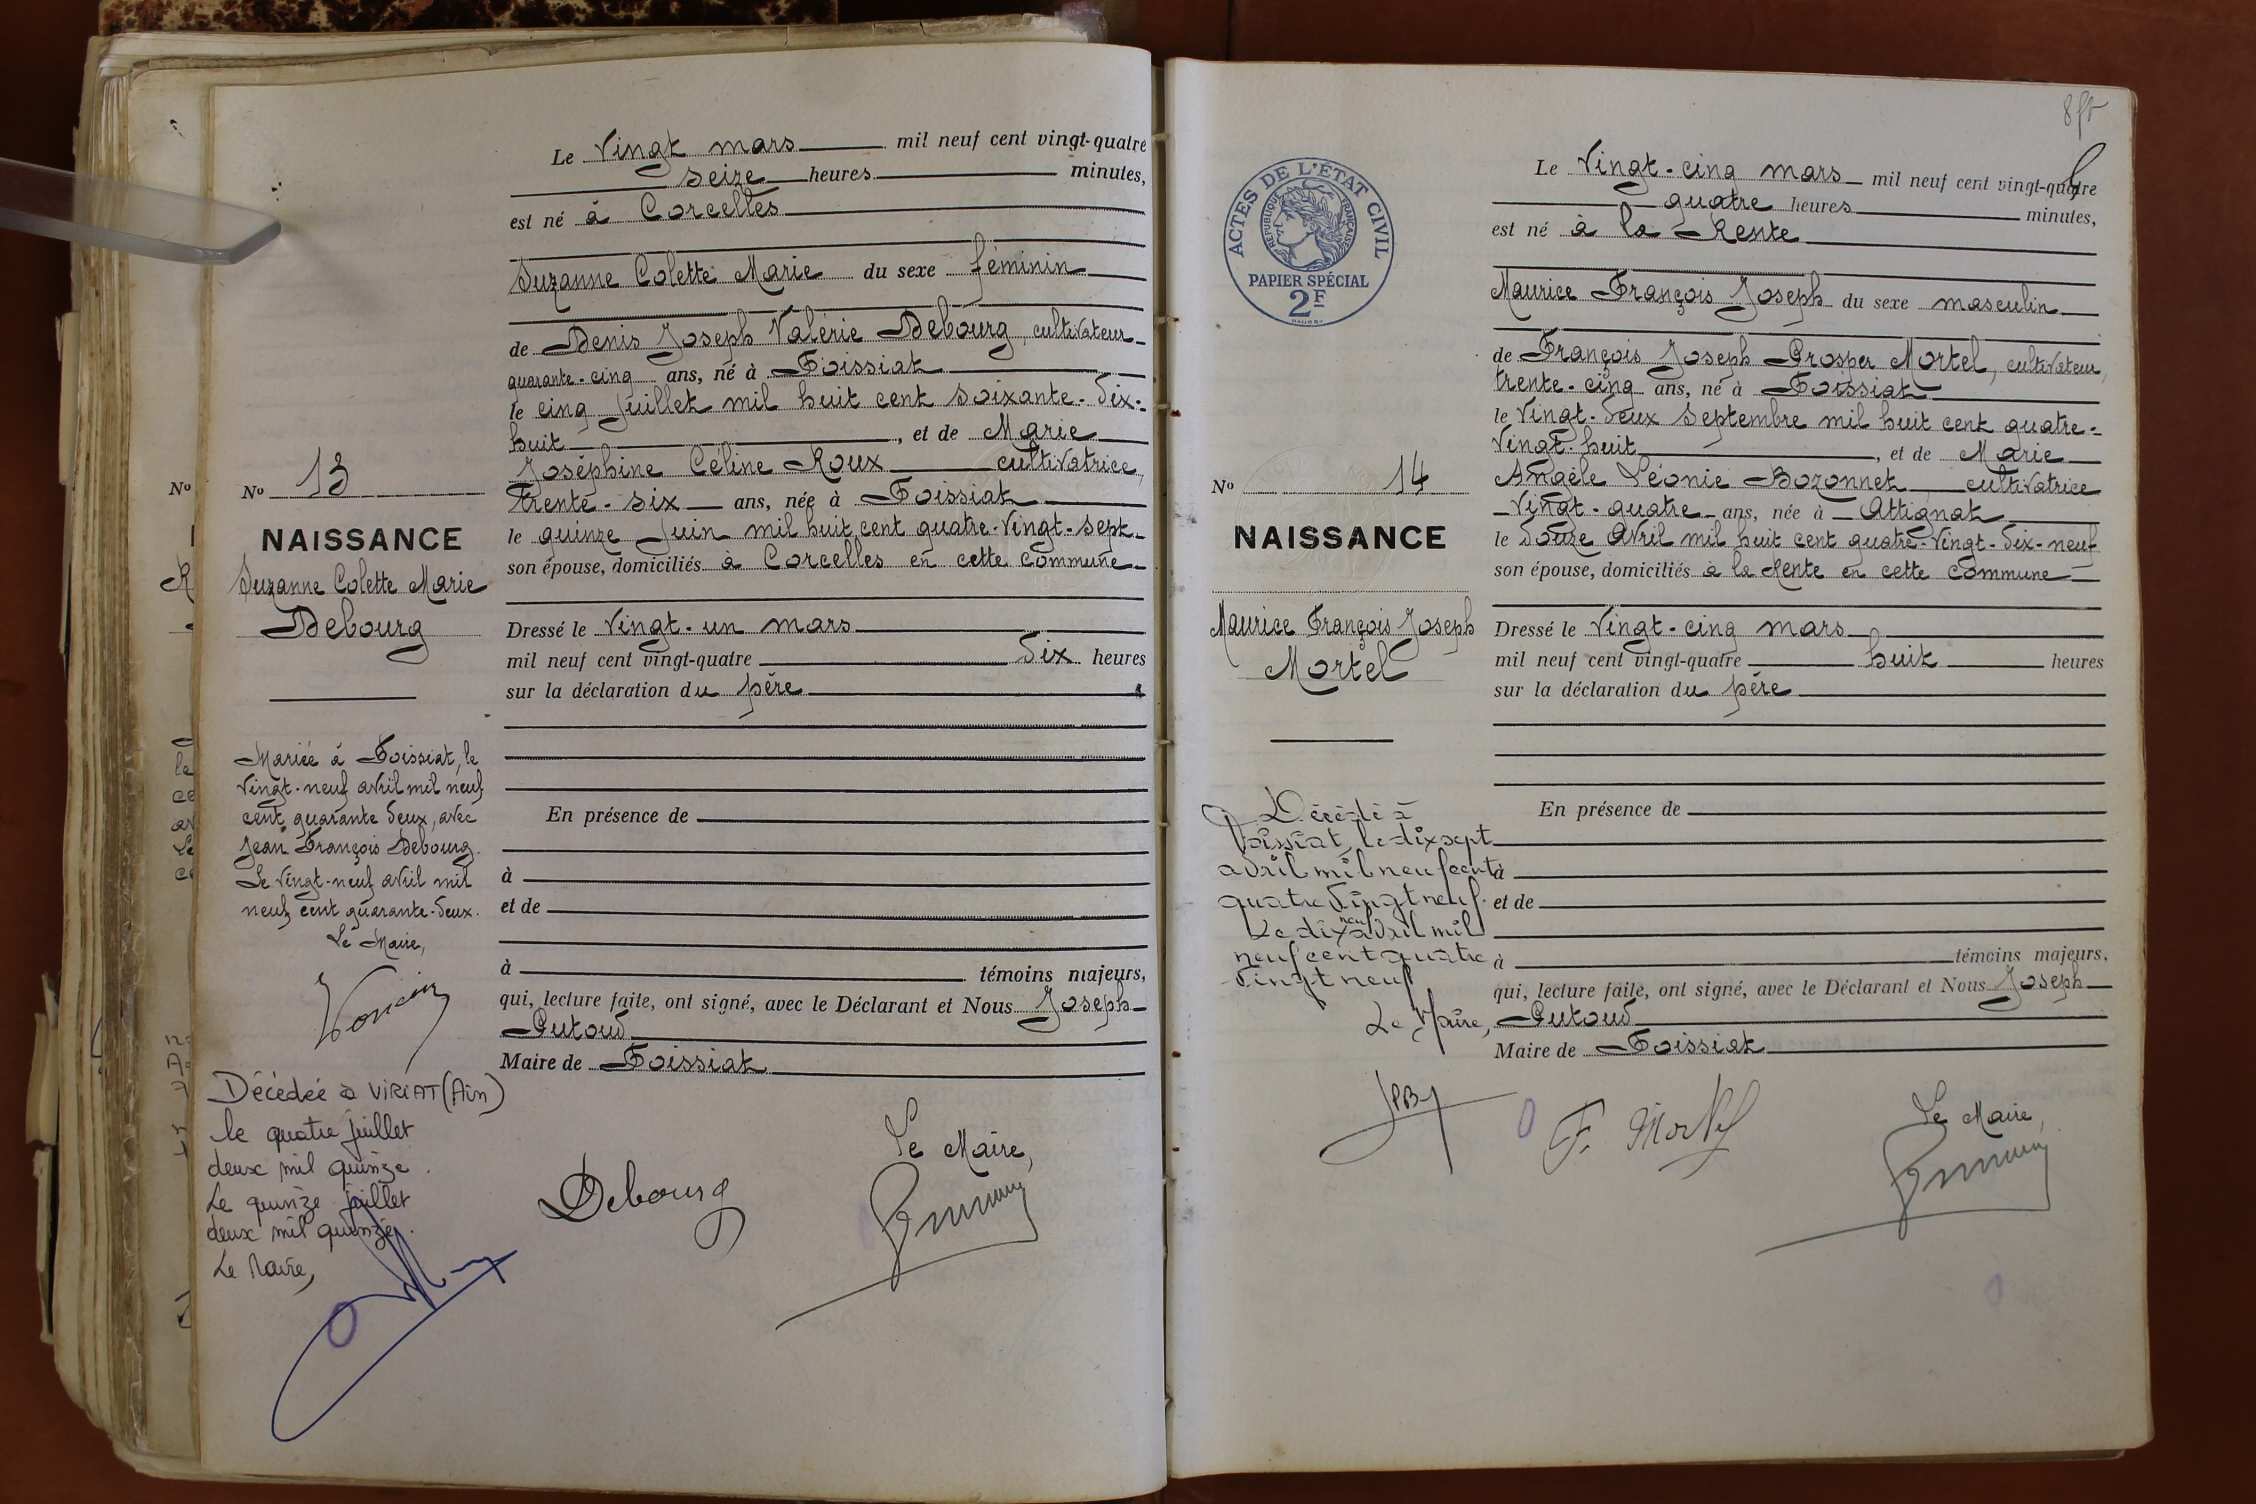 Le Vingt mars mil neuf cent vingt-quatre
seize heures minutes,
est né à Corcelles
Suzanne Colette Marie du sexe féminin
de Denis Joseph Valérie Debourg, cultivateur
quarante-cinq ans, né à Foissiat
le cinq Juillet mil huit cent soixante-dix-
huit, et de Marie
Joséphine Céline Roux cultivatrice,
trente-six ans, née à Foissiat
le quinze Juin mil huit cent quatre-vingt-sept
son épouse, domiciliés à Corcelles en cette commune
Dressé le vingt-un mars
mil neuf cent vingt-quatre dix heures
sur la déclaration du père
En présence de
à
et de
à témoins majeurs,
qui, lecture faite, ont signé, avec le Déclarant et Nous Joseph
Putoud
Maire de Foissiat
Le Maire,
Debourg
No 13
NAISSANCE
Suzanne Colette Marie
Debourg
Mariée à Foissiat, le
vingt-neuf avril mil neuf
cent quarante deux, avec
Jean François Debourg.
Le vingt-neuf avril mil
neuf cent quarante-deux.
Le Maire,
Décédée à VIRIAT (Ain)
le quatre juillet
deux mil quinze.
Le quinze juillet
deux mil quinze.
Le Maire,
No
ACTES DE L'ÉTAT CIVIL
RÉPUBLIQUE FRANÇAISE
PAPIER SPÉCIAL
2F
Le Vingt-cinq mars mil neuf cent vingt-quatre
quatre heures minutes,
est né à la Rente
Maurice François Joseph du sexe masculin
de François Joseph Prosper Mortel, cultivateur,
trente-cinq ans, né à Foissiat
le vingt-deux Septembre mil huit cent quatre-
vingt-huit, et de Marie
Angèle Léonie Bozonnet cultivatrice
vingt-quatre ans, née à Attignat
le douze Avril mil huit cent quatre-vingt-dix-neuf
son épouse, domiciliés à la Rente en cette commune
Dressé le vingt-cinq mars
mil neuf cent vingt-quatre huit heures
sur la déclaration du père
En présence de
à
et de
à témoins majeurs,
qui, lecture faite, ont signé, avec le Déclarant et Nous Joseph
Putoud
Maire de Foissiat
Le Maire,
F. Mortel
No 14
NAISSANCE
Maurice François Joseph
Mortel
Décédé à
Foissiat, le dix sept
avril mil neuf cent
quatre vingt neuf.
Le dix neuf avril mil
neuf cent quatre
vingt neuf
Le Maire,